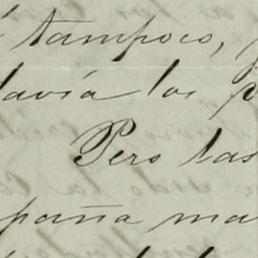 tampoco,
davía los
Pero las
paña ma